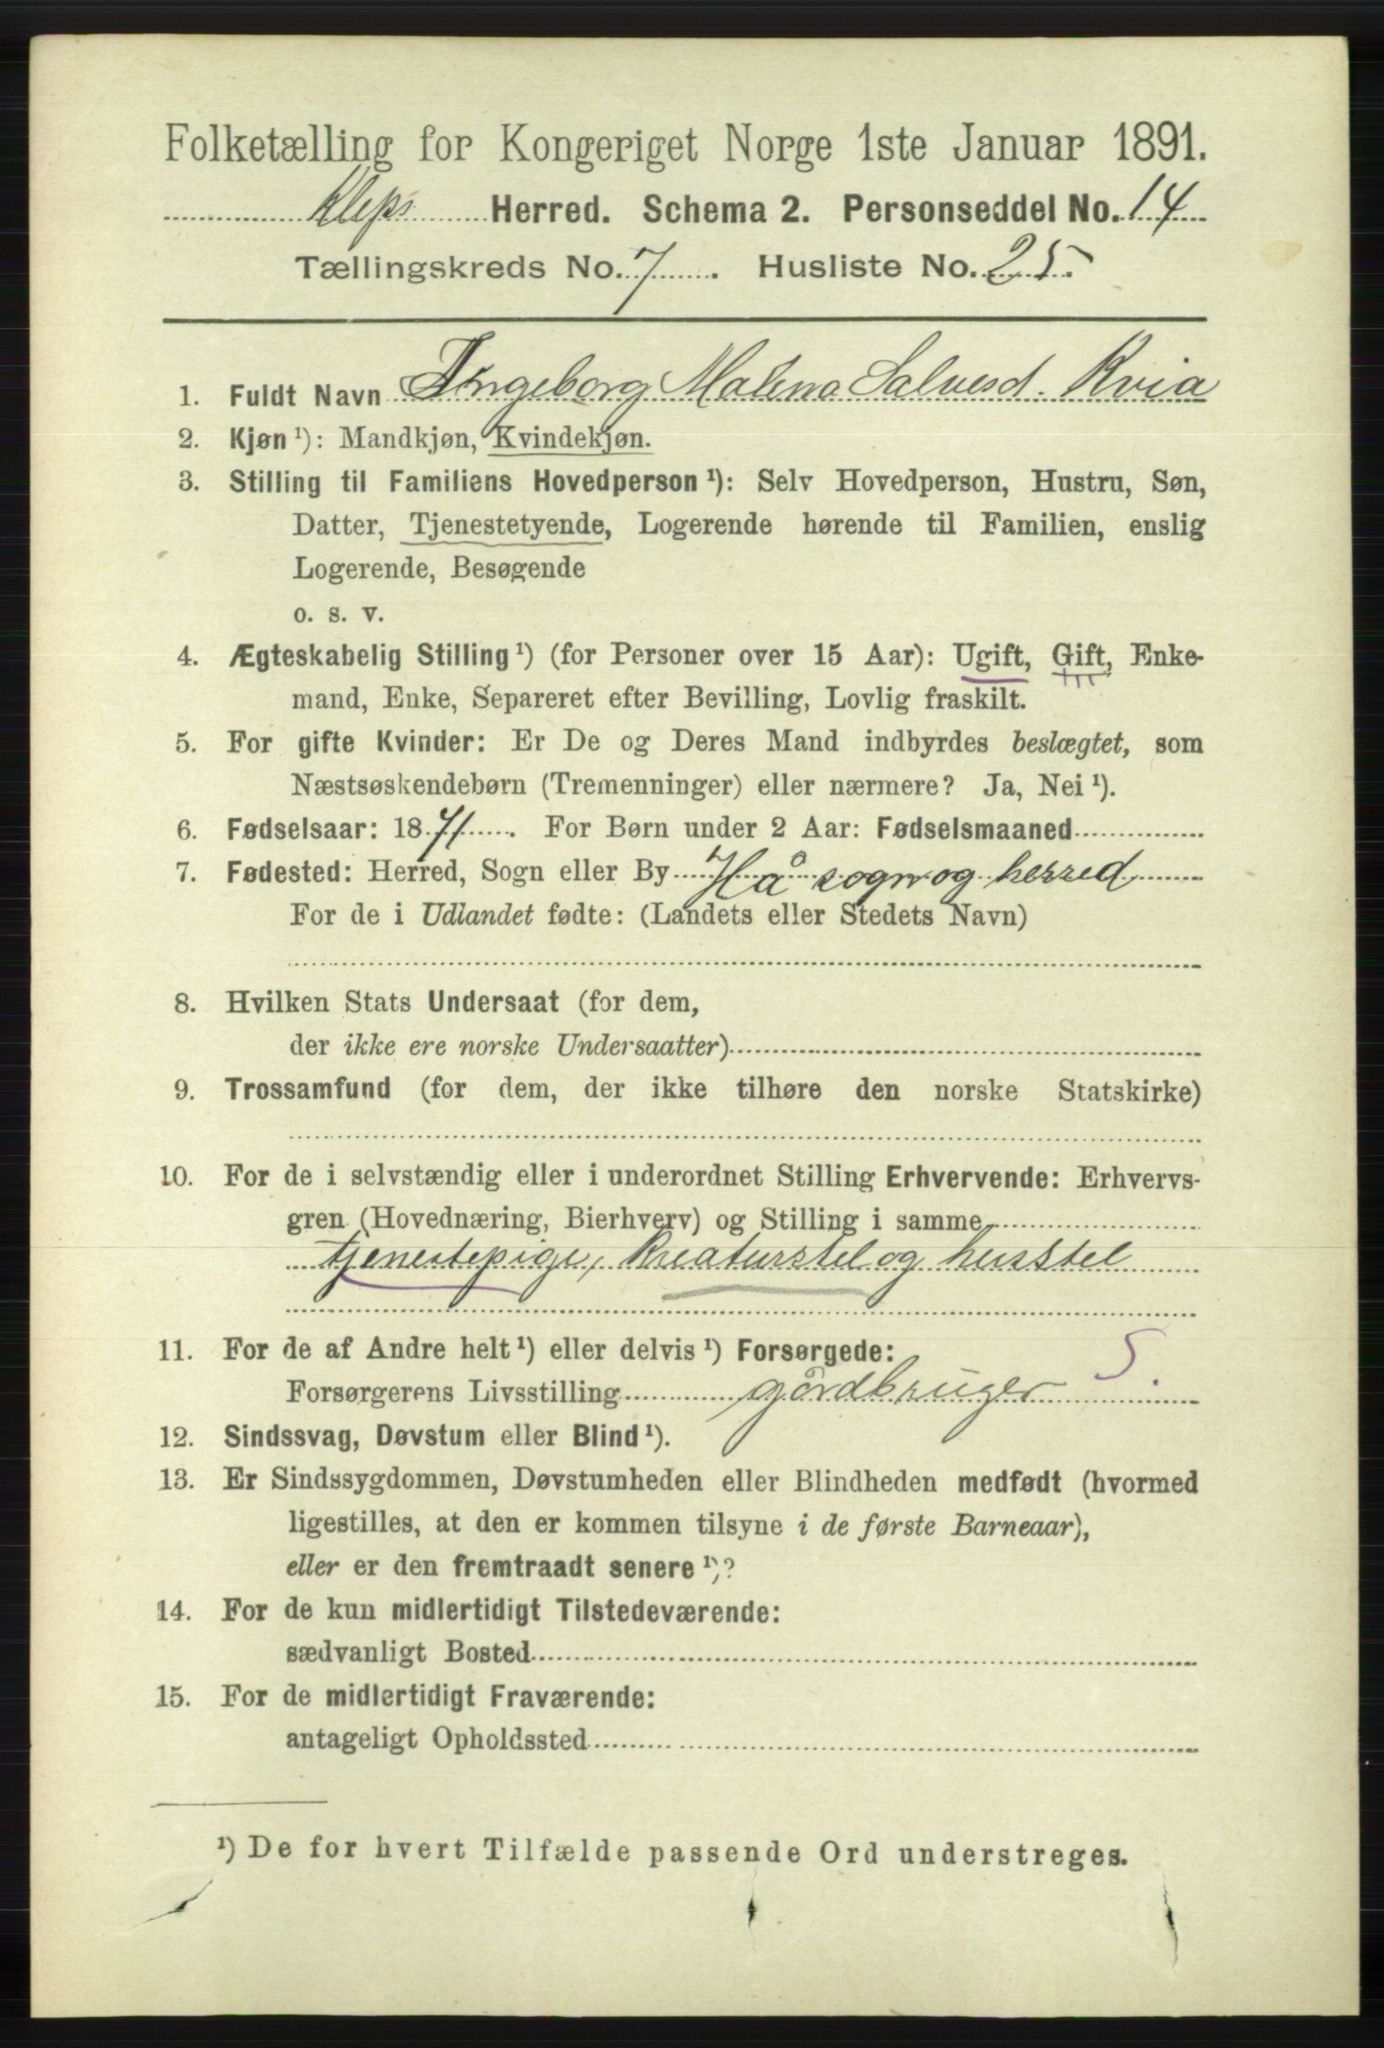 Folketælling for Kongeriget Norge 1ste Januar 1891.
Kleps Herred. Schema 2. Personseddel No. 14
Tællingskreds No. 7. Husliste No. 25.
1. Fuldt Navn Ingeborg Malena Salvesd. Kvia
2. Kjøn ¹): Mandkjøn, Kvindekjøn.
3. Stilling til Familiens Hovedperson ¹): Selv Hovedperson, Hustru, Søn,
Datter, Tjenestetyende, Logerende hørende til Familien, enslig
Logerende, Besøgende
o. s. v.
4. Ægteskabelig Stilling ¹) (for Personer over 15 Aar): Ugift, Gift, Enke-
mand, Enke, Separeret efter Bevilling, Lovlig fraskilt.
5. For gifte Kvinder: Er De og Deres Mand indbyrdes beslægtet, som
Næstsøskendebørn (Tremenninger) eller nærmere? Ja, Nei ¹).
6. Fødselsaar: 1871. For Børn under 2 Aar: Fødselsmaaned
7. Fødested: Herred, Sogn eller By Hå sogn og herred
For de i Udlandet fødte: (Landets eller Stedets Navn)
8. Hvilken Stats Undersaat (for dem,
der ikke ere norske Undersaatter)
9. Trossamfund (for dem, der ikke tilhøre den norske Statskirke)
10. For de i selvstændig eller i underordnet Stilling Erhvervende: Erhvervs-
gren (Hovednæring, Bierhverv) og Stilling i samme
tjenestepige, kreaturstel og husstel
11. For de af Andre helt ¹) eller delvis ¹) Forsørgede: 5.
Forsørgerens Livsstilling gårdbruger
12. Sindssvag, Døvstum eller Blind ¹).
13. Er Sindssygdommen, Døvstumheden eller Blindheden medfødt (hvormed
ligestilles, at den er kommen tilsyne i de første Barneaar),
eller er den fremtraadt senere ¹)?
14. For de kun midlertidigt Tilstedeværende:
sædvanligt Bosted
15. For de midlertidigt Fraværende:
antageligt Opholdssted
¹) De for hvert Tilfælde passende Ord understreges.